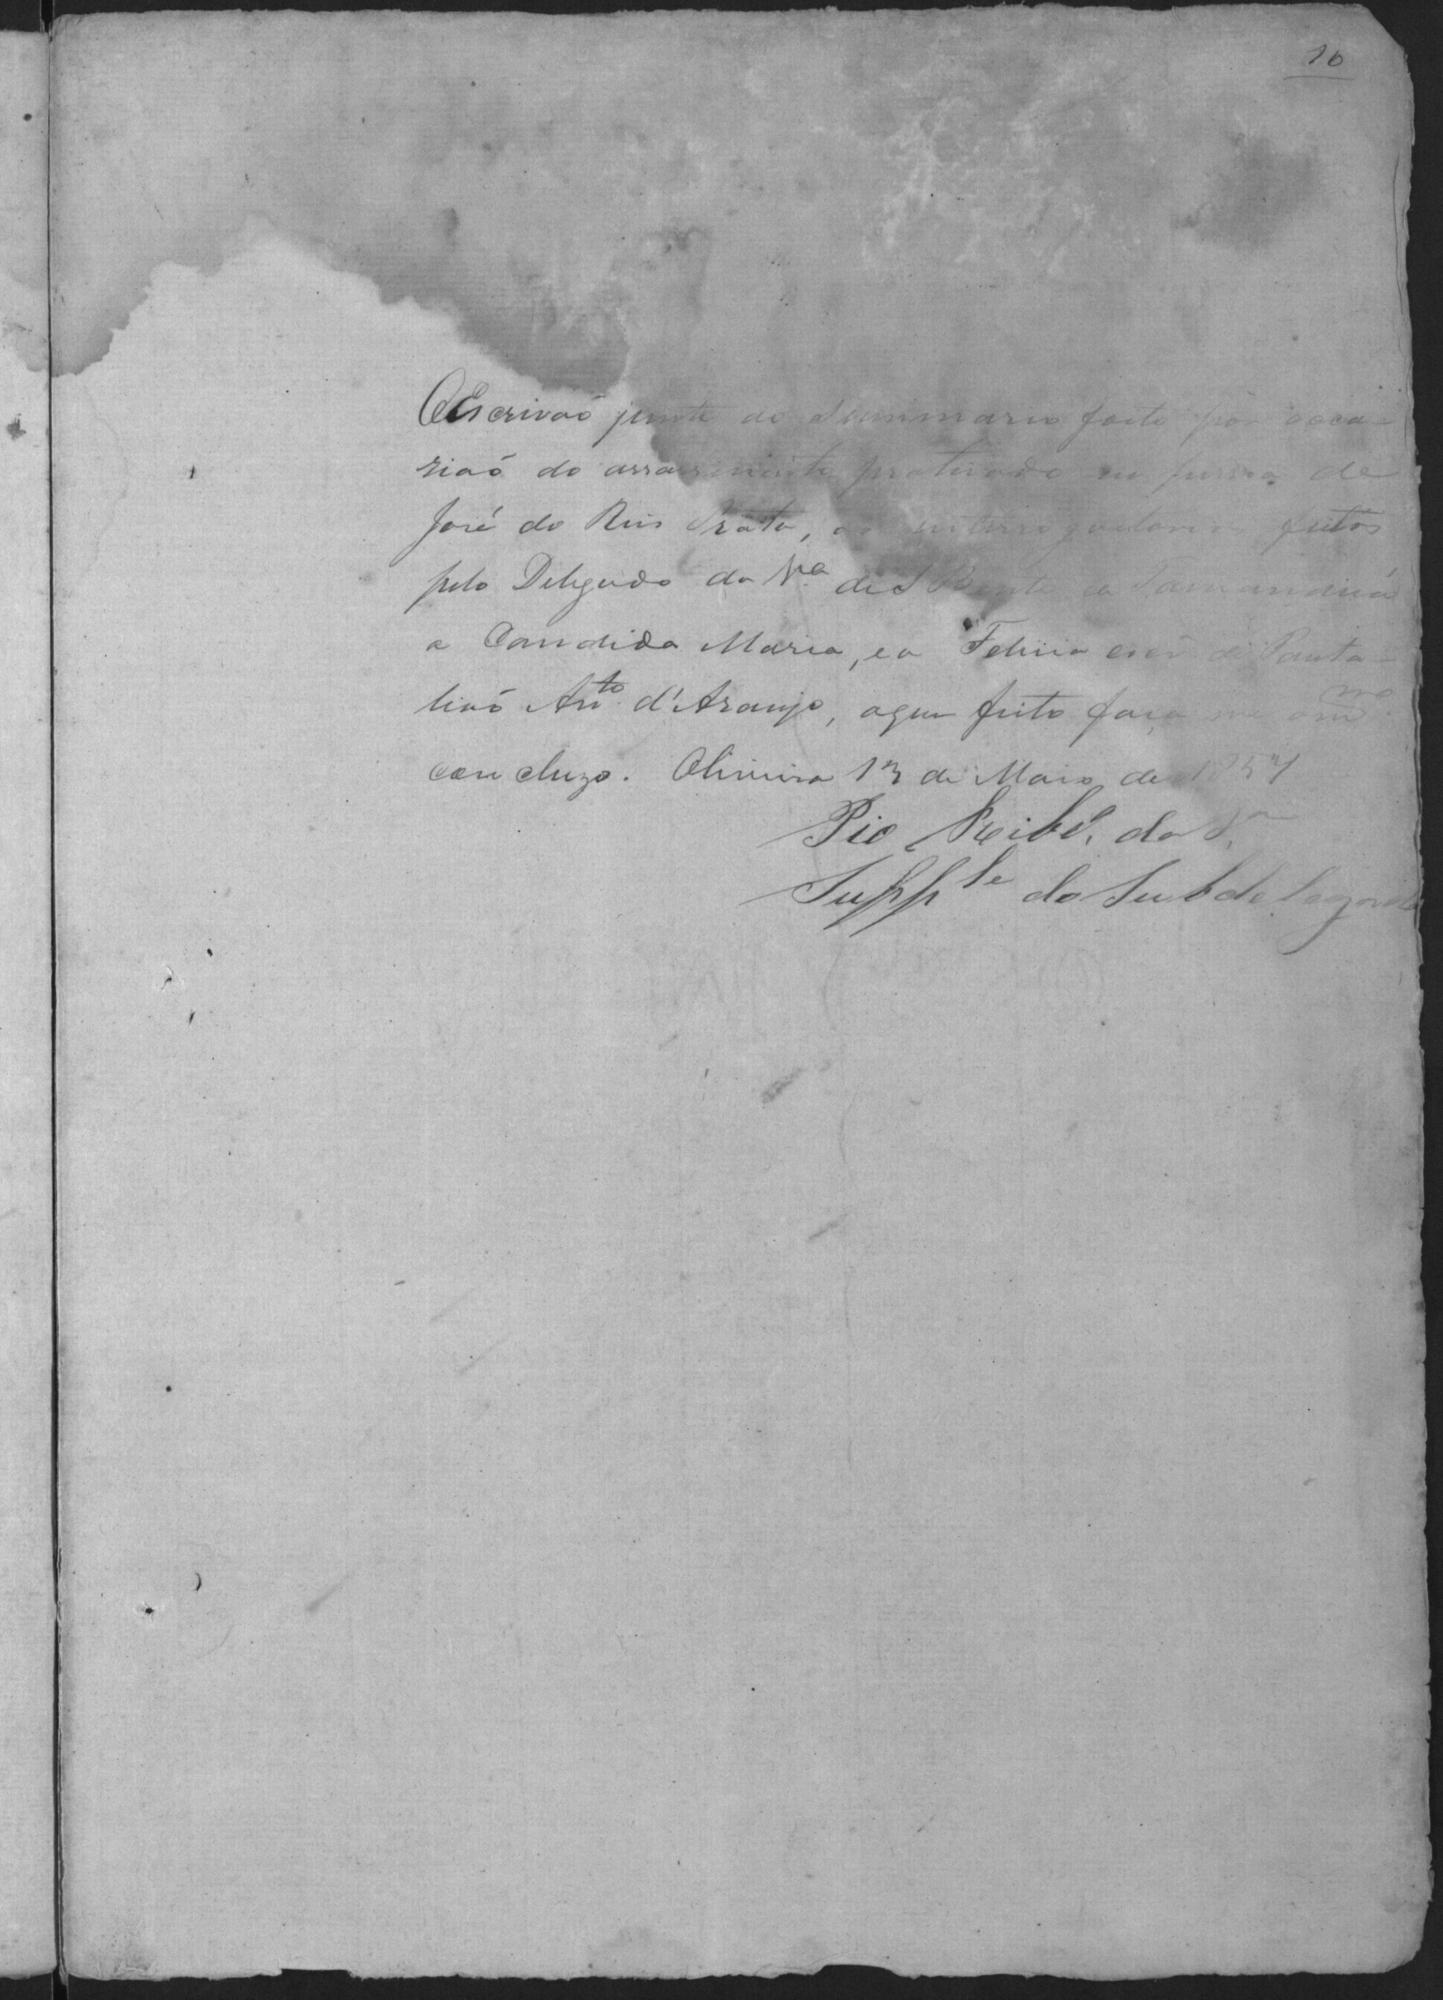 10
O Escrivaõ junte ao Summario feito por occa-
ziaõ do assassinato praticado na pessoa de
José do Reis Prata, os interrogatorios feitos
pelo Delegado da Vª de S Bento do Tamanduá
a Candida Maria, e a Felicia escª de Panta-
liaõ Antº d'Araujo, e que feito faça me om mo
concluzo. Oliveira 13 de Maio de 1857
Pio Ribrº da Sª
Suppte do Subdelegado